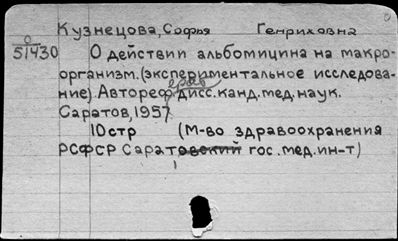 Кузнецова, Софья Генриховна
0
51430
О действии альбомицина на макро-
организм. (экспериментальное исследова-
ние). Автореф. дисс. канд. мед. наук.
Саратов, 1957
10стр (М-во здравоохранения
РСФСР Саратовский гос. мед. ин-т)